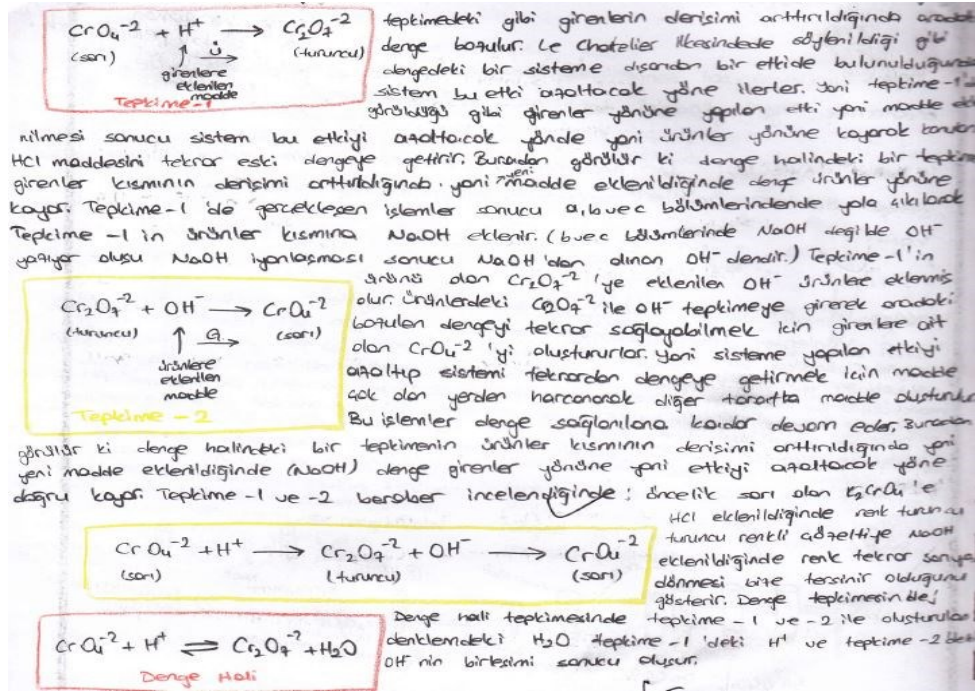 CrO₄⁻² + H⁺ → Cr₂O₇⁻²
(sarı) (turuncu)
Ü
girenlere
eklenilen
madde
Tepkime-1
tepkimedeki gibi girenlerin derişimi arttırıldığında
denge bozulur. Le Chatelier ilkesindede söylenildiği gibi
dengedeki bir sisteme dışarıdan bir etkide bulunulduğunda
sistem bu etki azaltacak yöne ilerler. Yani tepkime-1'
görüldüğü gibi girenler yönüne yapılan etki yani madde
nilmesi sonucu sistem bu etkiyi azaltacak yönde yani ürünler yönüne kayarak
HCl maddesini tekrar eski dengeye getirir. Buradan görülür ki denge halindeki bir
girenler kısmının derişimi arttırıldığında yani yeni madde eklenildiğinde denge ürünler yönüne
kayar. Tepkime-1 'de gerçekleşen işlemler sonucu a,b ve c bölümlerindende yola çıkılarak
Tepkime -1 in ürünler kısmına NaOH eklenir. (b ve c bölümlerinde NaOH değilde OH⁻
yazıyor oluşu NaOH iyonlaşması sonucu NaOH'dan alınan OH⁻ dendir.) Tepkime-1'in
ürünü olan Cr₂O₇⁻² 'ye eklenilen OH⁻ ürünlere eklenmiş
olur. Ürünlerdeki Cr₂O₇⁻² ile OH⁻ tepkimeye girerek aradaki
bozulan dengeyi tekrar sağlayabilmek için girenlere ait
olan CrO₄⁻² 'yi oluştururlar. Yani sisteme yapılan etkiyi
azaltıp sistemi tekrardan dengeye getirmek için madde
çok olan yerden harcanarak diğer tarafta madde
Bu işlemler denge sağlanılana kadar devam eder. Buradan
Cr₂O₇⁻² + OH⁻ → CrO₄⁻²
(turuncu) (sarı)
G
ürünlere
eklenilen
madde
Tepkime - 2
görülür ki denge halindeki bir tepkimenin ürünler kısmının derişimi arttırıldığında yani
yeni madde eklenildiğinde (NaOH) denge girenler yönüne yani etkiyi azaltacak yöne
doğru kayar. Tepkime-1 ve -2 beraber incelendiğinde ; öncelik sarı olan K₂CrO₄ 'e
HCl eklenildiğinde renk turuncu
turuncu renkli çözeltiye NaOH
eklenildiğinde renk tekrar sarıya
dönmesi bize tersinir olduğunu
gösterir. Denge
CrO₄⁻² + H⁺ → Cr₂O₇⁻² + OH⁻ → CrO₄⁻²
(sarı) (turuncu) (sarı)
Denge hali tepkimesinde tepkime-1 ve -2 ile oluşturulan
denklemdeki H₂O tepkime-1 'deki H⁺ ve tepkime-2
OH⁻ nin birleşimi sonucu oluşur.
CrO₄⁻² + H⁺ ⇌ Cr₂O₇⁻² + H₂O
Denge Hali